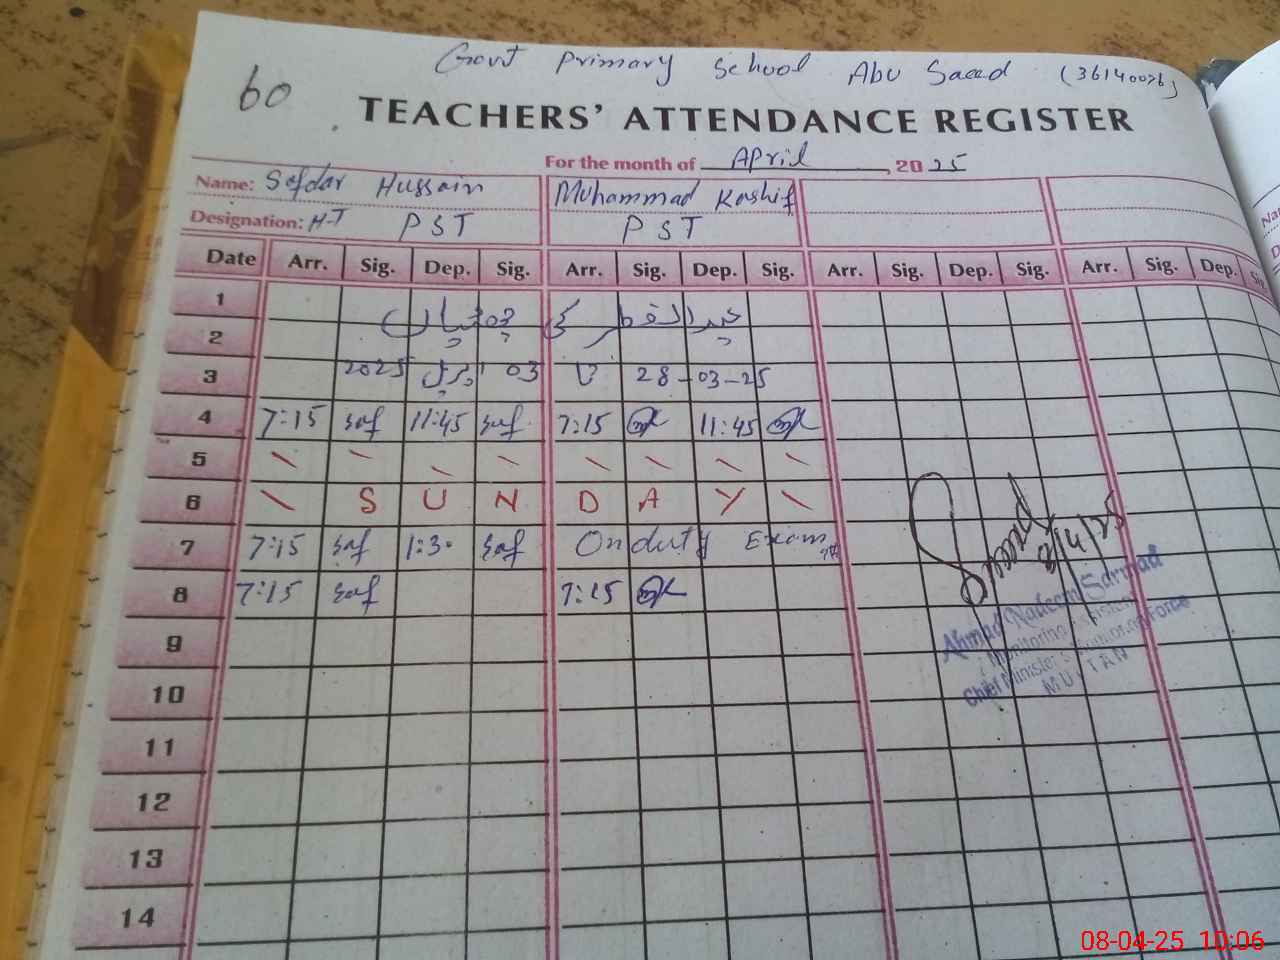 Govt Primary School Abu Saeed (36140076)
60
TEACHERS' ATTENDANCE REGISTER
For the month of April, 2025
Name: Safdar Hussain Muhammad Kashif
Designation: H-T PST PST
Date Arr. Sig. Dep. Sig. Arr. Sig. Dep. Sig. Arr. Sig. Dep. Sig. Arr. Sig. Dep.
1
عید الفطر کی
2
3 28-03-25 تا 03 اپریل 2025
4 7:15 Saf 11:45 Saf 7:15 11:45
5 \ \ \ \ \ \ \ \
6 \ S U N D A Y \
7 7:15 Saf 1:30 Saf On duty Exam
8 7:15 Saf 7:15
8/4/25
9
Ahmad Nadeem Sarmad
Monitoring Assistant
Chief Minister's Monitoring Force
MULTAN
10
11
12
13
14
08-04-25 10:06